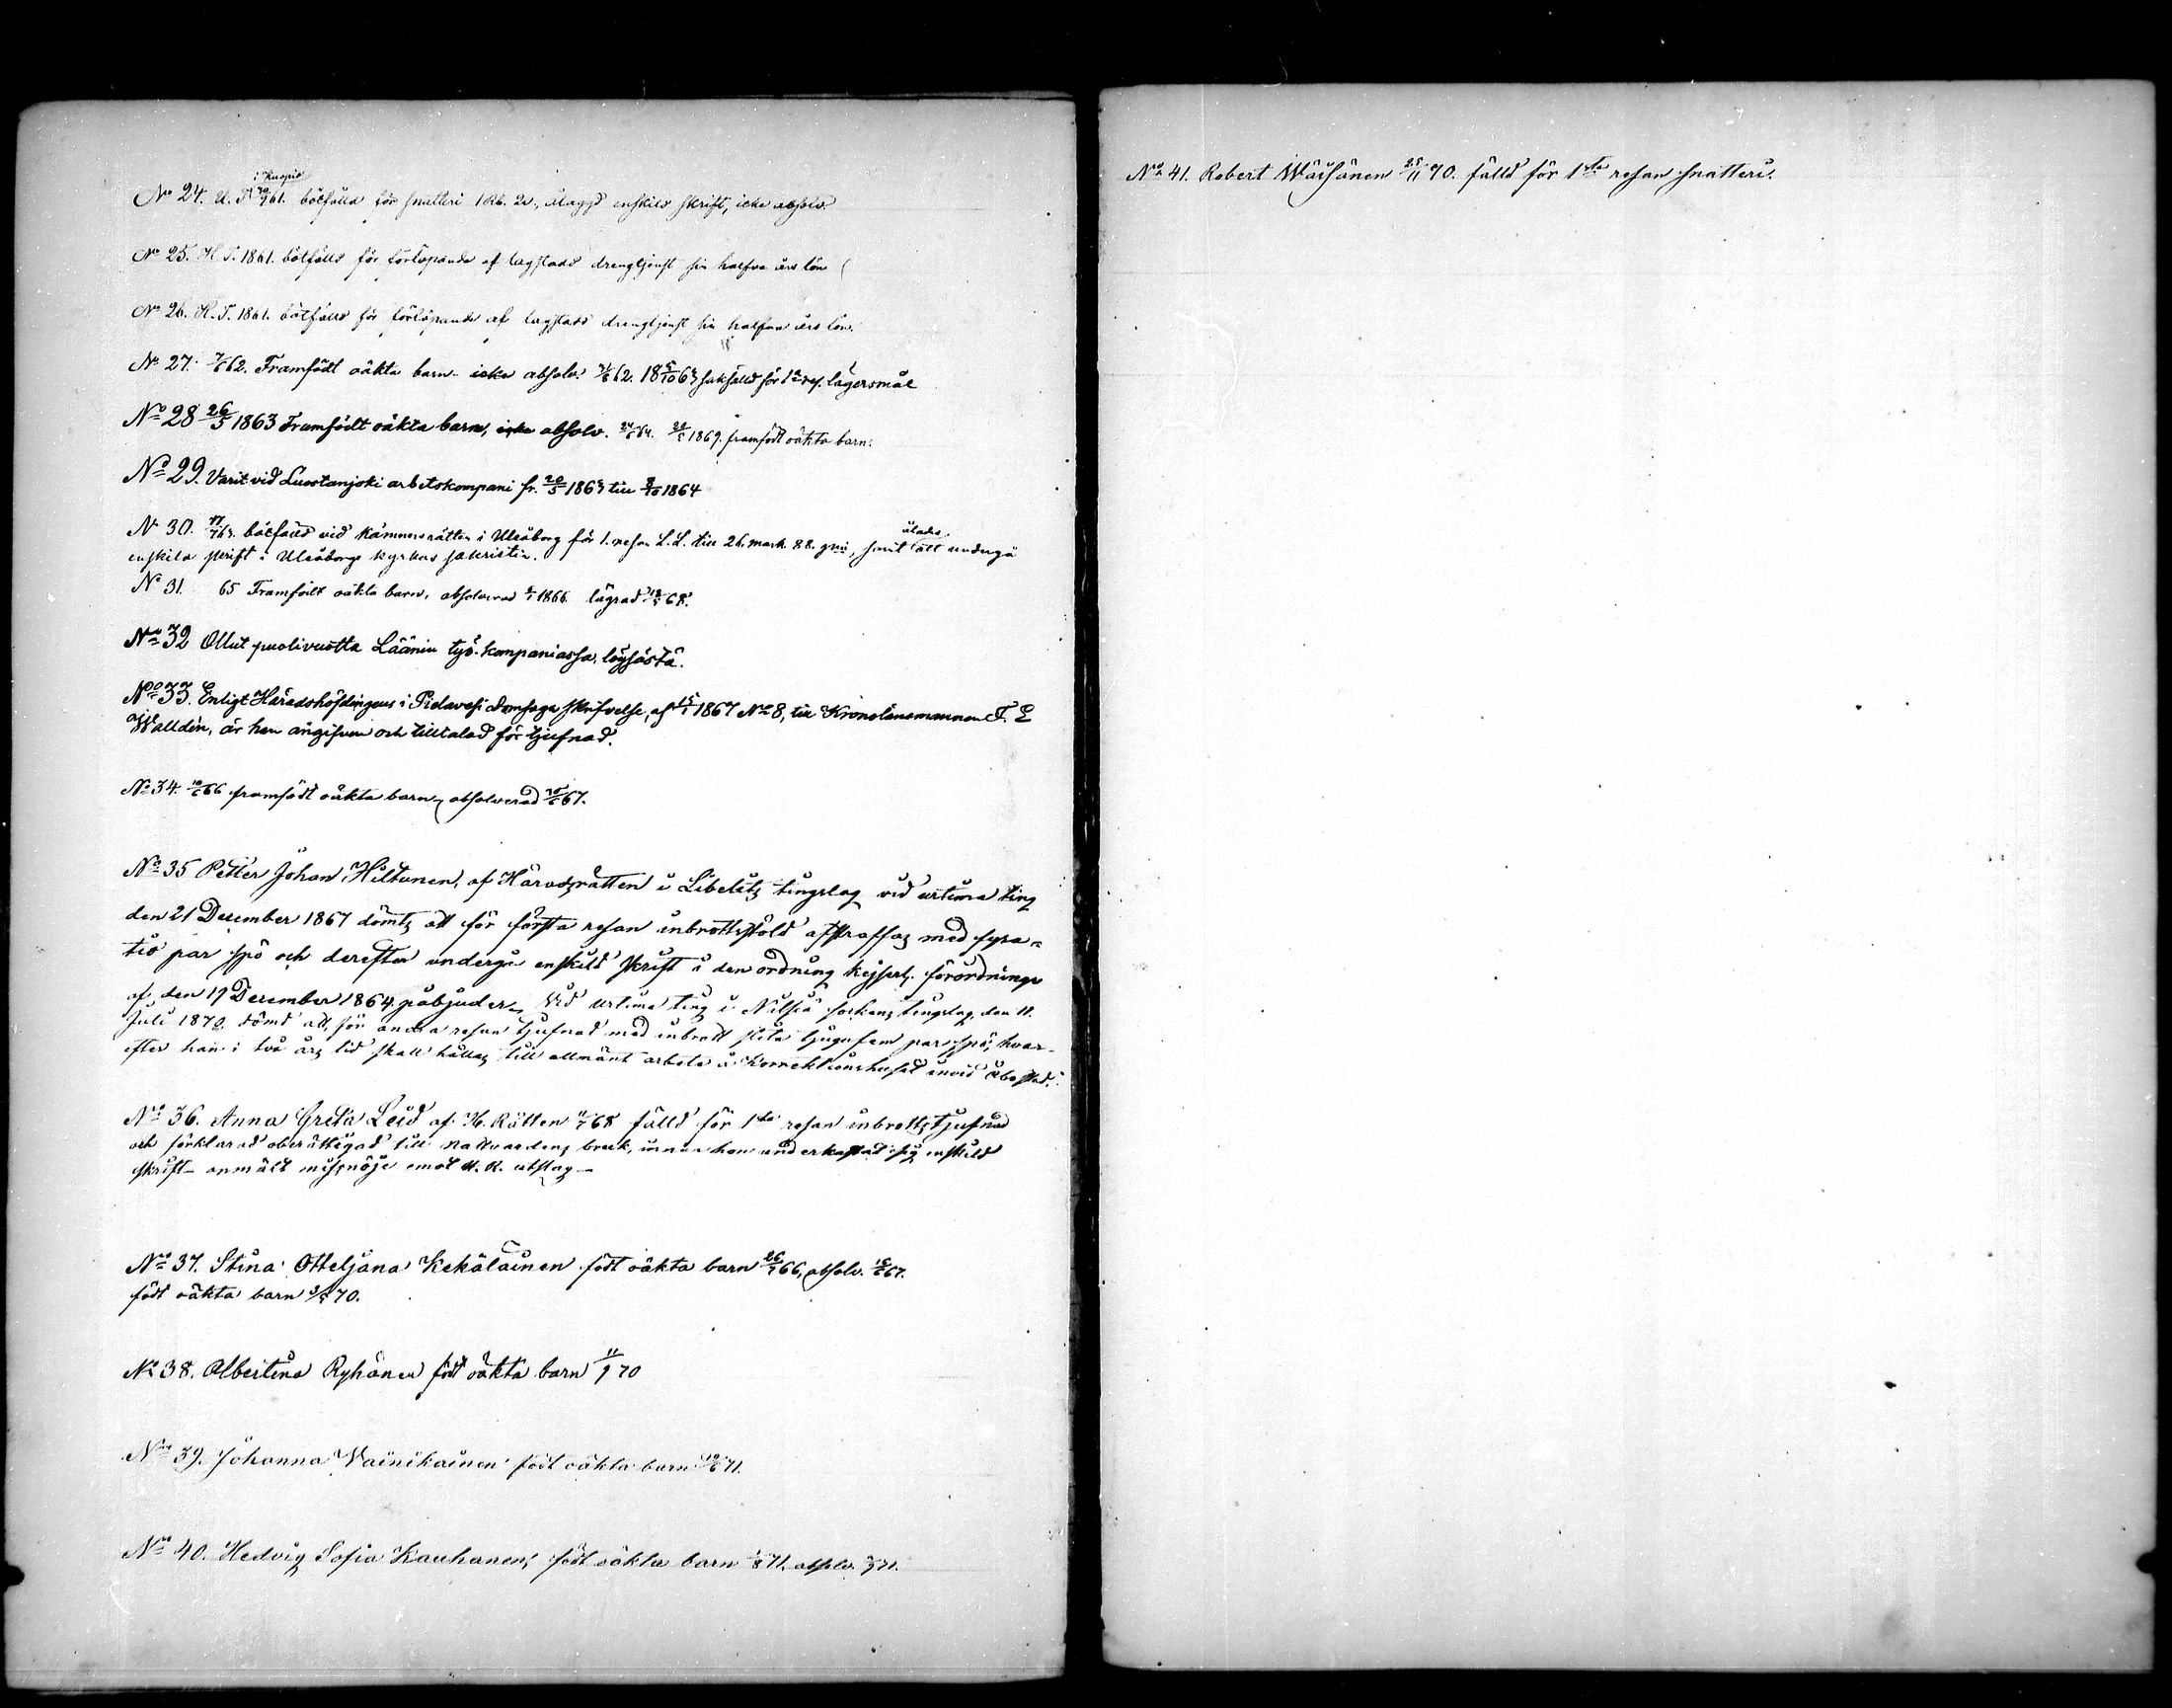 i Kuopio
No 24. U. T. 61. bötfälld för snatteri 1 Rb. 20., ålagd enskild skrift, icke absolv.
No 25. H. T. 1861. bötfälld för förlöpande af lagstadd drengtjenst sin halfva års lön
No 26. H. T. 1861. bötfälld för förlöpande af lagstadd drengtjenst sin halfva års lön.
No 27. 7/6 62. Framfödt oäkta barn - icke absolv. 62. 18 5/10 63 sakfälld för 1a res. lägersmål
No 28 26/5 1863 Framfödt oäkta barn, icke absolv. 64. 1869. framfödt oäkta barn.
No 29. Varit vid Luostanjoki arbetskompani fr. 20/5 1863 till 8/10 1864
N 30. 17/7 63. bötfälld vid Kämnersrätten i Uleåborg för 1. resan L.L. till 26. mark 88. pni, samt ålades att undergå
enskild skrift i Uleåborgs kyrkas sakristia.
No 31. 65 Framfödt oäkta barn, absolverad 1866. lägrad 68.
No 32 Ollut puolivuotta Läänin työ-kompaniassa, löysästä.
No 33. Enligt Häradshöfdingens i Pielavesi Domsaga skrifvelse, af 15/1 1867 No 8, till Kronolänsmannen F. E
Walldén, är han angifven och tilltalad för tjufnad.
No 34. 10/6 66 framfödt oäkta barn, absolverad 67.
No 35 Petter Johan Hiltunen, af Häradsrätten i Libelits tingslag vid urtima ting
den 21 December 1867 dömts att för första resan inbrottsstöld afstraffas med fyra-
tio par spö och derefter undergå enskild skrift i den ordning kejserl. förordninge
af den 19 December 1864 påbjuder. Vid urtima ting i Nilsiä sockens tingslag den 11.
Juli 1870 dömd att för andra resan tjufnad med inbrott slita tjugufem par spö, hvar-
efter han i två års tid skall hållas till allmänt arbete å Korrektionshuset invid Åbo stad.
No 36. Anna Greta Leid af H. Rätten 68 fälld för 1sta resan inbrottstjufnad
och förklarad oberättigad till nattvardens bruk, innan hon underkastat sig enskild
skrift - anmält missnöje emot H. R. utslag -
No 37. Stina Otteljana Kekäläinen födt oäkta barn 26/7 66, absolv. 67.
födt oäkta barn 70.
No 38. Albertina Ryhänen födt oäkta barn 11/9 70
No 39. Johanna Vainikainen födt oäkta barn 71.
No 40. Hedvig Sofia Kauhanen, födt oäkta barn 1/8 71. absolv. 71.
No 41. Robert Wäisänen 25/11 70. fälld för 1sta resan snatteri.